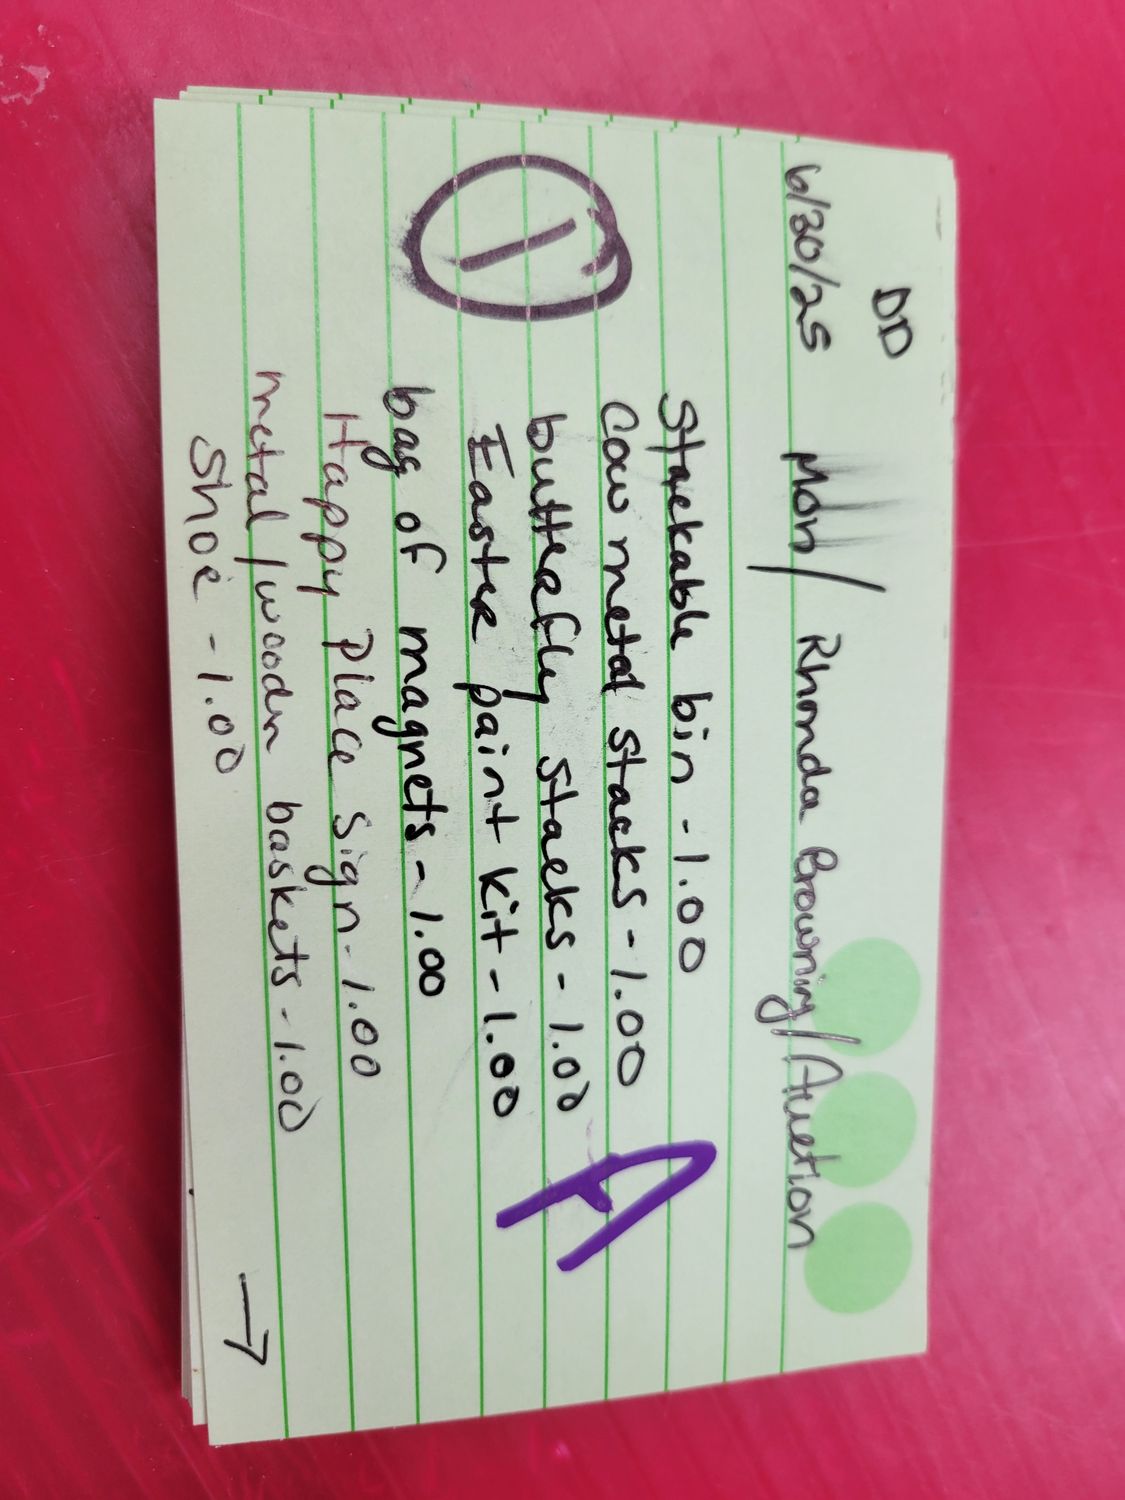 DD
6/30/25 Mon/ Rhonda Browning/Auction
Stackable bin - 1.00
Cow metal stacks - 1.00
butterfly stacks - 1.00
Easter paint kit - 1.00
1
A
bag of magnets - 1.00
Happy Place Sign - 1.00
metal/wooden baskets - 1.00
Shoe - 1.00
→